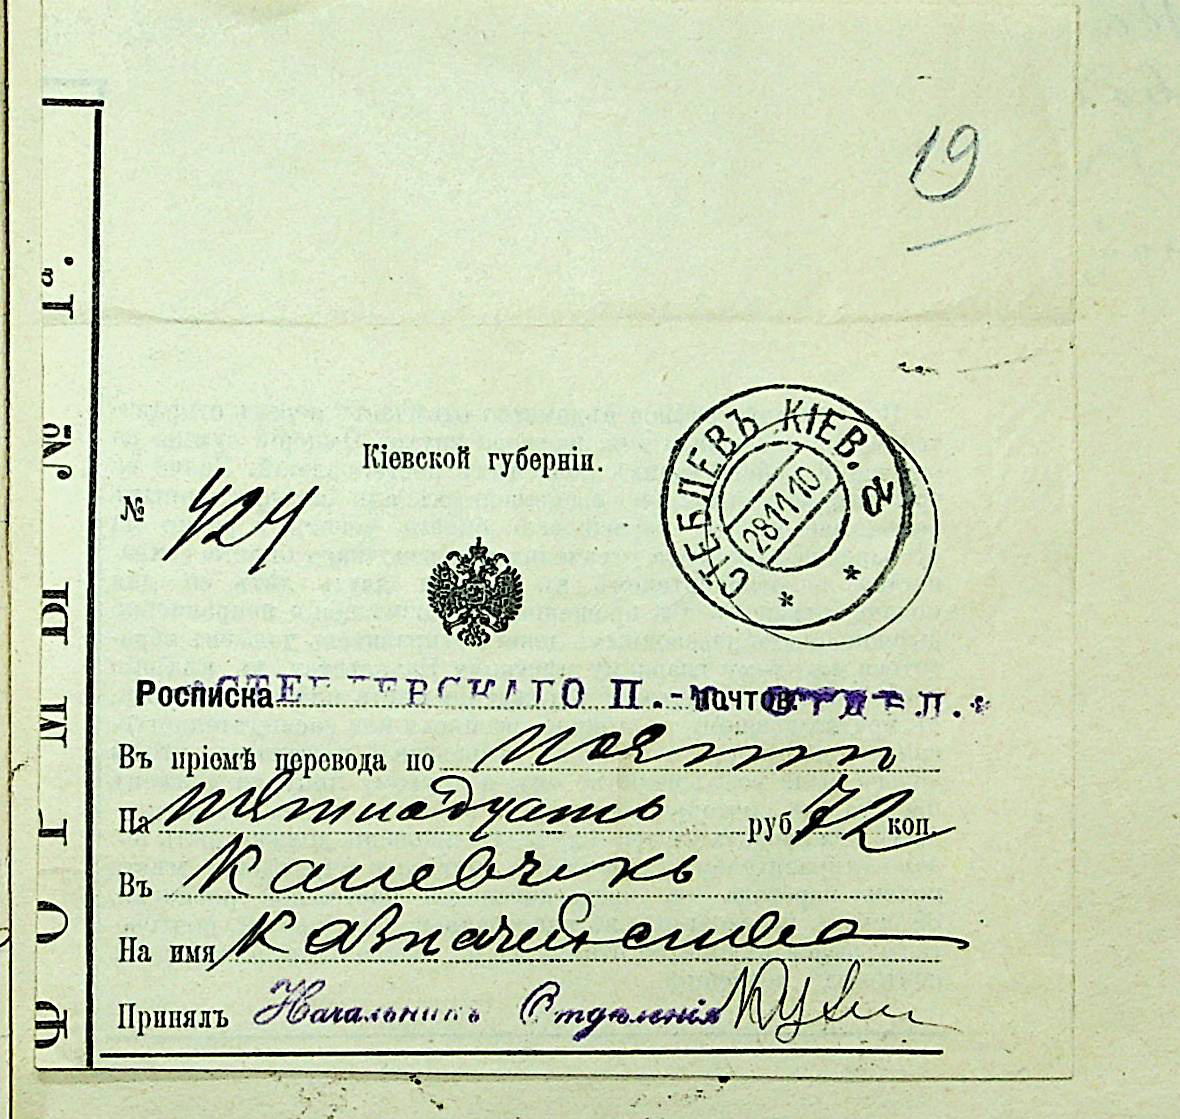 19
СТЕБЛЕВЪ КІЕВ. а
28 11 10
Кіевской губерніи.
№ 424
Росписка СТЕБЛЕВСКАГО П.-Т. почтов. ОТДѢЛ.
Въ пріемѣ перевода по почтѣ
На пятнадцать руб. 72 коп.
Въ Каневъ
На имя Казначейства
Принялъ Начальникъ Отдѣленія
ФОРМЫ № 1а.